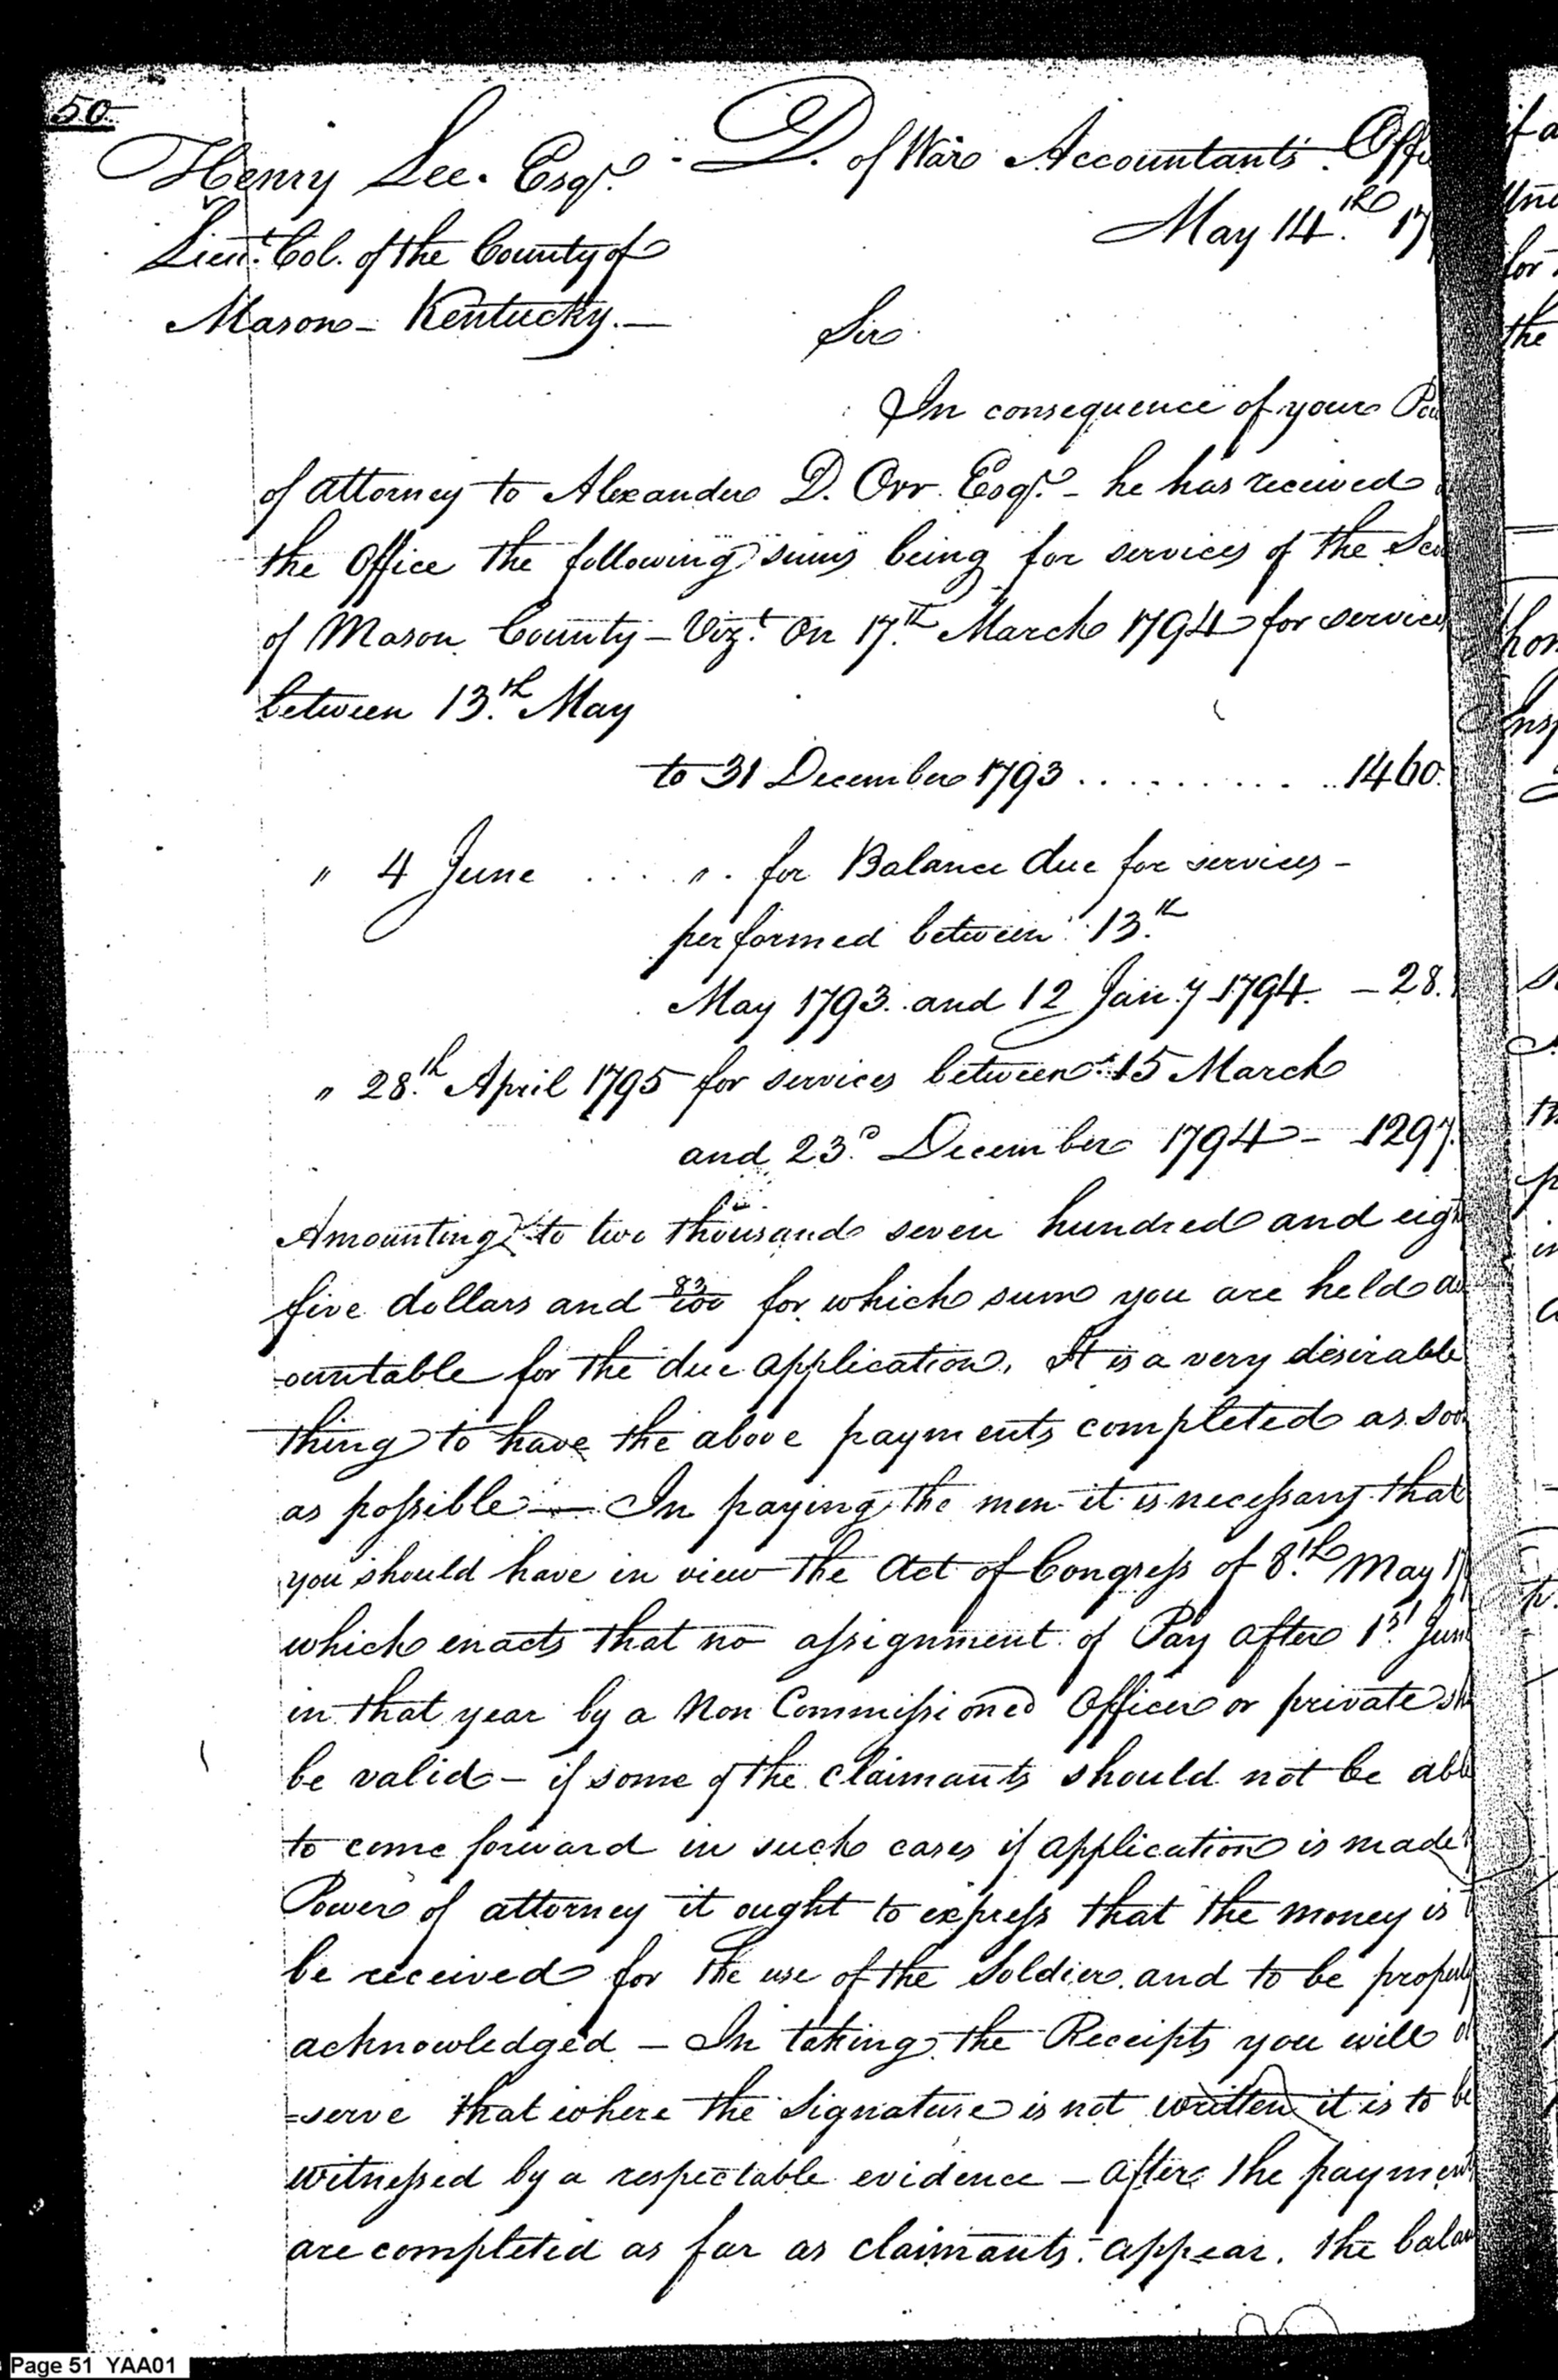 50
Henry Lee. Esqr. D. of War Accountants Offi
Lieut. Col. of the County of May 14.th 17
Mason - Kentucky. —
Sir
In consequence of your Po
of attorney to Alexander D. Orr Esqr. - he has received
the Office the following sums being for services of the Sco
of Mason County - Vizt. On 17.th March 1794 for services
between 13.th May
to 31 December 1793 . . . . . . . . . . 1460.
" 4 June . . . . " . for Balance due for services -
performed between 13.th
May 1793. and 12 Jan.y 1794. - 28.
" 28.th April 1795 for services between 15 March
and 23.d December 1794 - 1297.
Amounting to two thousand seven hundred and eigh
five dollars and 83/100 for which sum you are held ac
ountable for the due application. It is a very desirable
thing to have the above payments completed as soo
as possible — In paying the men it is necessary that
you should have in view the Act of Congress of 8.th May 17
which enacts that no assignment of Pay after 1st. June
in that year by a Non Commissioned Officer or private sh
be valid - if some of the claimants should not be able
to come forward in such cases if application is made
Power of attorney it ought to express that the money is t
be received for the use of the Soldier and to be properly
acknowledged - In taking the Receipts you will ob
=serve that where the Signature is not written it is to be
witnessed by a respectable evidence - after the payment
are completed as far as claimants appear. the balan
if a
the
Page 51 YAA01